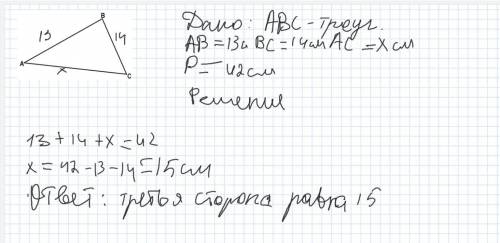 B
13
14
A
x
C
Дано: ABC - треуг.
AB = 13см BC = 14см AC = x см
P = 42см
Решение
13 + 14 + x = 42
x = 42 - 13 - 14 = 15см
Ответ: третья сторона равна 15